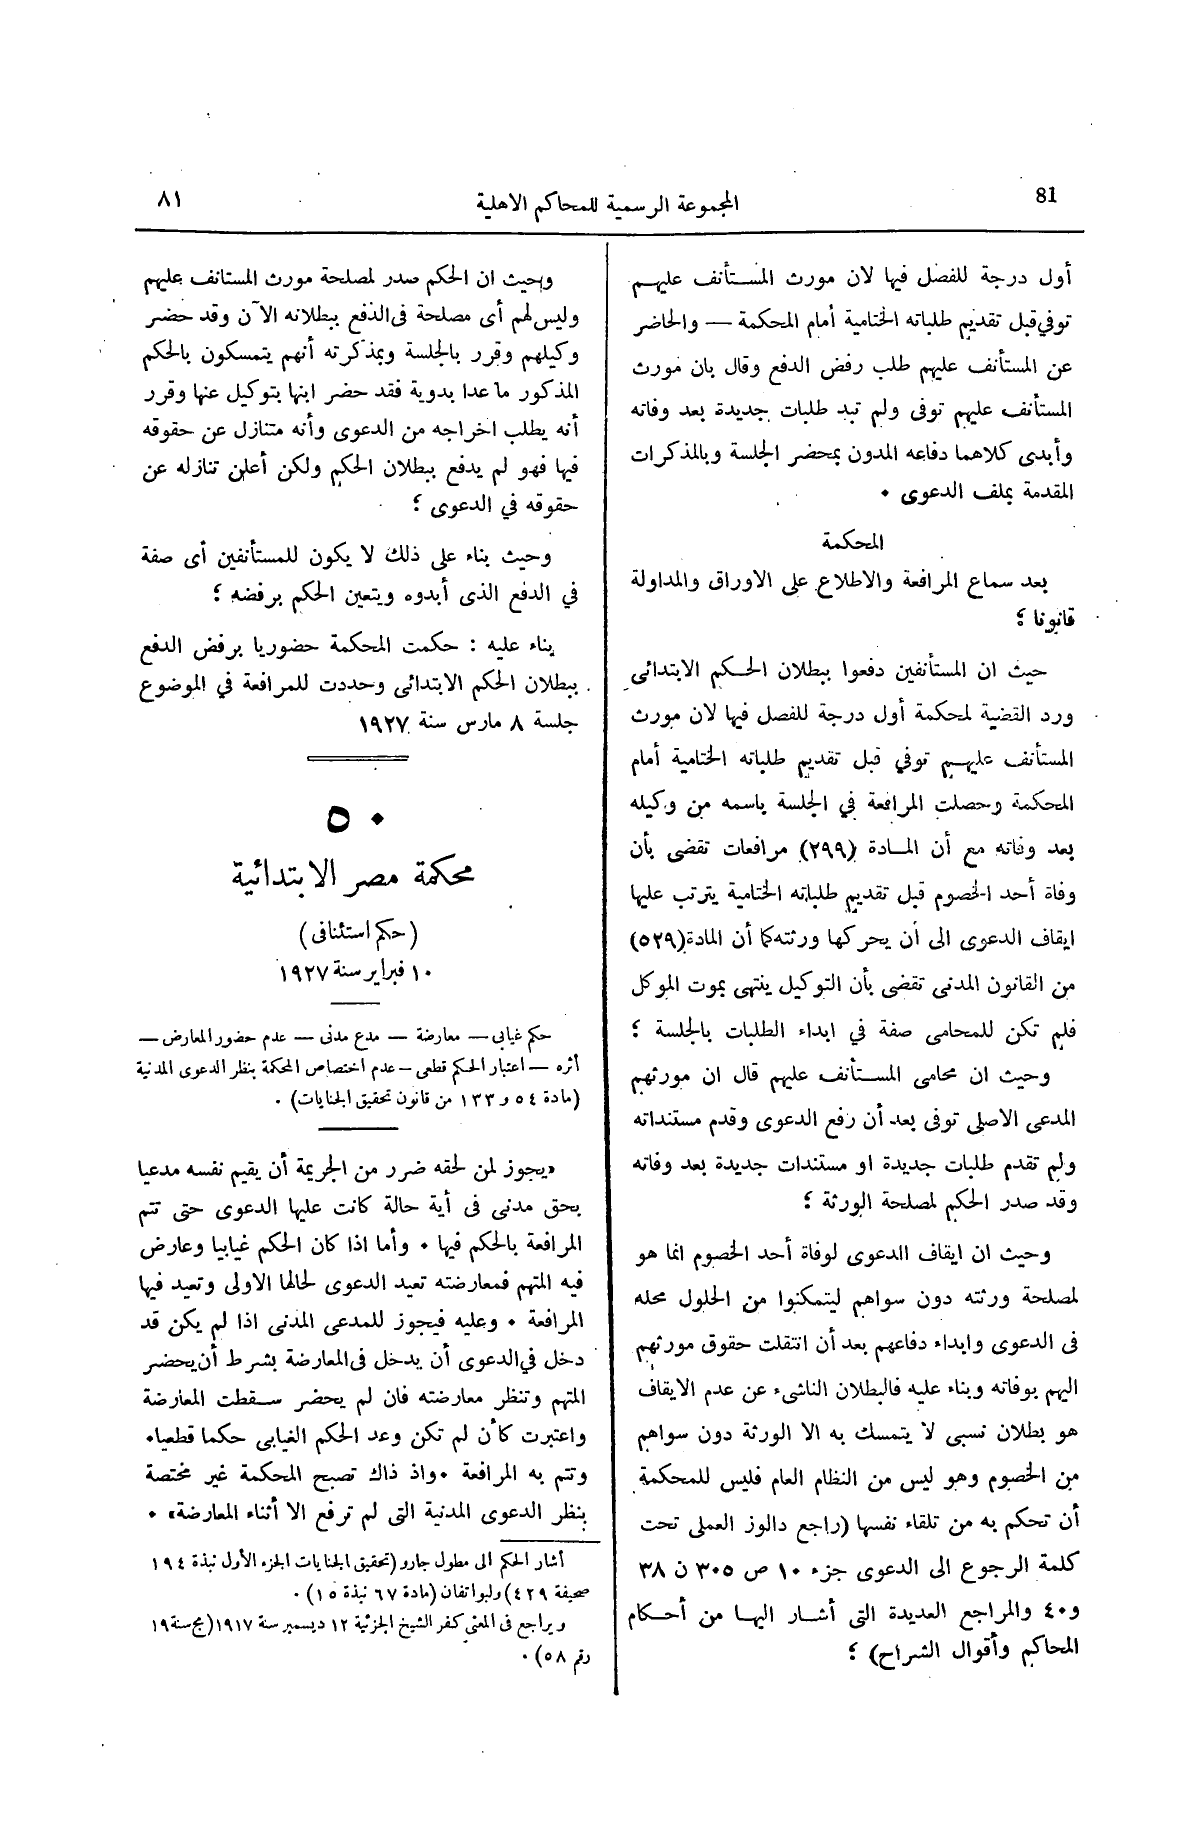 81
المجموعة الرسمية للمحاكم الاهلية
٨١
أول درجة للفصل فيها لان مورث المستأنف عليهم
توفي قبل تقديم طلباته الختامية أمام المحكمة — والحاضر
عن المستأنف عليهم طلب رفض الدفع وقال بان مورث
المستأنف عليهم توفى ولم تبد طلبات جديدة بعد وفاته
وأبدى كلاهما دفاعه المدون بمحضر الجلسة وبالمذكرات
المقدمة بملف الدعوى .
المحكمة
بعد سماع المرافعة والاطلاع على الاوراق والمداولة
قانونا ؛
حيث ان المستأنفين دفعوا ببطلان الحكم الابتدائى
ورد القضية لمحكمة أول درجة للفصل فيها لان مورث
المستأنف عليهم توفي قبل تقديم طلباته الختامية أمام
المحكمة وحصلت المرافعة في الجلسة باسمه من وكيله
بعد وفاته مع أن المادة (٢٩٩) مرافعات تقضى بأن
وفاة أحد الخصوم قبل تقديم طلباته الختامية يترتب عليها
ايقاف الدعوى الى أن يحركها ورثته كما أن المادة (٥٢٩)
من القانون المدنى تقضى بأن التوكيل ينتهى بموت الموكل
فلم تكن للمحامى صفة في ابداء الطلبات بالجلسة ؛
وحيث ان محامى المستأنف عليهم قال ان مورثهم
المدعى الاصلى توفى بعد أن رفع الدعوى وقدم مستنداته
ولم تقدم طلبات جديدة او مستندات جديدة بعد وفاته
وقد صدر الحكم لمصلحة الورثة ؛
وحيث ان ايقاف الدعوى لوفاة أحد الخصوم انما هو
لمصلحة ورثته دون سواهم ليتمكنوا من الحلول محله
فى الدعوى وابداء دفاعهم بعد أن انتقلت حقوق مورثهم
اليهم بوفاته وبناء عليه فالبطلان الناشىء عن عدم الايقاف
هو بطلان نسبى لا يتمسك به الا الورثة دون سواهم
من الخصوم وهو ليس من النظام العام فليس للمحكمة
أن تحكم به من تلقاء نفسها (راجع دالوز العملى تحت
كلمة الرجوع الى الدعوى جزء ١٠ ص ٣٠٥ ن ٣٨
و٤٠ والمراجع العديدة التى أشار اليها من أحكام
المحاكم وأقوال الشراح) ؛
وحيث ان الحكم صدر لمصلحة مورث المستانف عليهم
وليس لهم أى مصلحة فى الدفع ببطلانه الآن وقد حضر
وكيلهم وقرر بالجلسة وبمذكرته أنهم يتمسكون بالحكم
المذكور ما عدا بدوية فقد حضر ابنها بتوكيل عنها وقرر
أنه يطلب اخراجه من الدعوى وأنه متنازل عن حقوقه
فيها فهو لم يدفع ببطلان الحكم ولكن أعلن تنازله عن
حقوقه في الدعوى ؛
وحيث بناء على ذلك لا يكون للمستأنفين أى صفة
في الدفع الذى أبدوه ويتعين الحكم برفضه ؛
بناء عليه : حكمت المحكمة حضوريا برفض الدفع
ببطلان الحكم الابتدائى وحددت للمرافعة في الموضوع
جلسة ٨ مارس سنة ١٩٢٧
٥٠
محكمة مصر الابتدائية
(حكم استئنافى)
١٠ فبراير سنة ١٩٢٧
حكم غيابى — معارضة — مدع مدنى — عدم حضور المعارض —
أثره — اعتبار الحكم قطعى — عدم اختصاص المحكمة بنظر الدعوى المدنية
(مادة ٥٤ و ١٣٣ من قانون تحقيق الجنايات) .
«يجوز لمن لحقه ضرر من الجريمة أن يقيم نفسه مدعيا
بحق مدنى فى أية حالة كانت عليها الدعوى حتى تتم
المرافعة بالحكم فيها . وأما اذا كان الحكم غيابيا وعارض
فيه المتهم فمعارضته تعيد الدعوى لحالها الاولى وتعيد فيها
المرافعة . وعليه فيجوز للمدعى المدنى اذا لم يكن قد
دخل في الدعوى أن يدخل فى المعارضة بشرط أن يحضر
المتهم وتنظر معارضته فان لم يحضر سقطت المعارضة
واعتبرت كأن لم تكن وعد الحكم الغيابى حكما قطعيا.
وتتم به المرافعة . واذ ذاك تصبح المحكمة غير مختصة
بنظر الدعوى المدنية التى لم ترفع الا أثناء المعارضة» .
أشار الحكم الى مطول جارو (تحقيق الجنايات الجزء الأول نبذة ١٩٤
صحيفة ٤٢٩) ولبواتفان (مادة ٦٧ نبذة ١٥) .
ويراجع فى المعنى كفر الشيخ الجزئية ١٢ ديسمبر سنة ١٩١٧ (مج سنة ١٩
رقم ٥٨) .